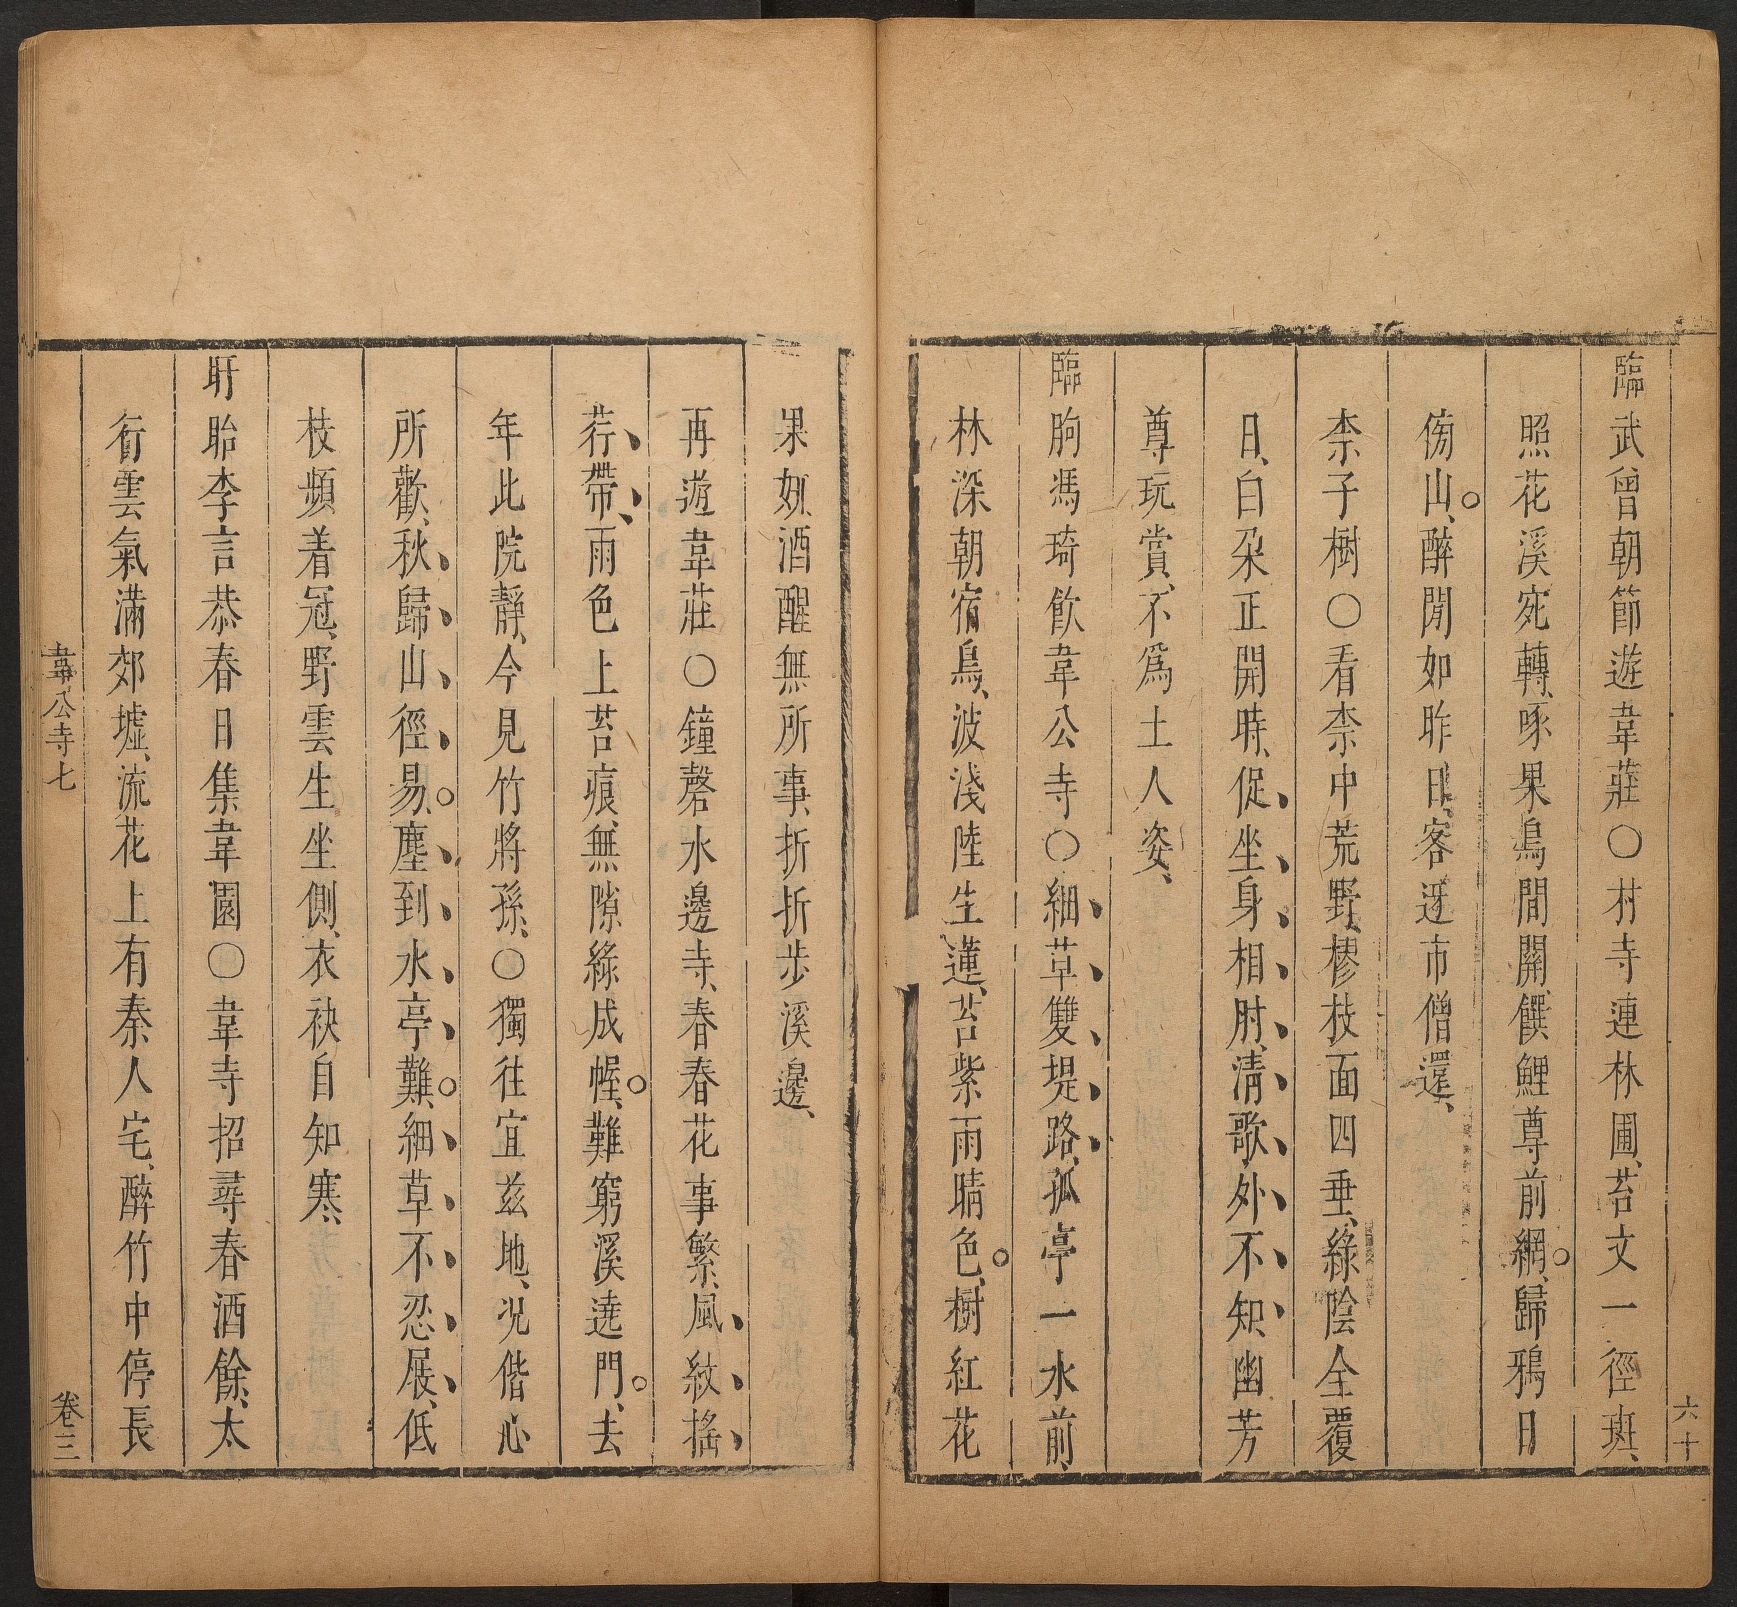 臨武曾朝節遊韋莊○村寺連林圃、苔文一徑斑、
照花溪宛轉、啄果鳥間關、饌鯉尊前網、歸鴉日
傍山、醉閒如昨日、客遝市僧還、
柰子樹○看柰中荒野、樛枝面四垂、綠陰全覆
日、白朵正開時、促坐身相肘、清歌外不知、幽芳
尊玩賞、不爲土人姿、
臨朐馮琦飲韋公寺○細草雙堤路、孤亭一水前、
林深朝宿鳥、波淺陸生蓮、苔紫雨晴色、樹紅花
六十
果如、酒醒無所事、折折步溪邊、
再遊韋莊○鐘磬水邊寺、春春花事繁、風紋搖
荇帶、雨色上苔痕、無隙綠成幄、難窮溪遶門、去
年此院靜、今見竹將孫、○獨往宜茲地、況偕心
所歡、秋歸山徑易、塵到水亭難、細草不忍展、低
枝頻着冠、野雲生坐側、衣袂自知寒、
盱眙李言恭春日集韋園○韋寺招尋春酒餘、太
行雲氣滿郊墟、流花上有秦人宅、醉竹中停長
韋公寺七
卷三